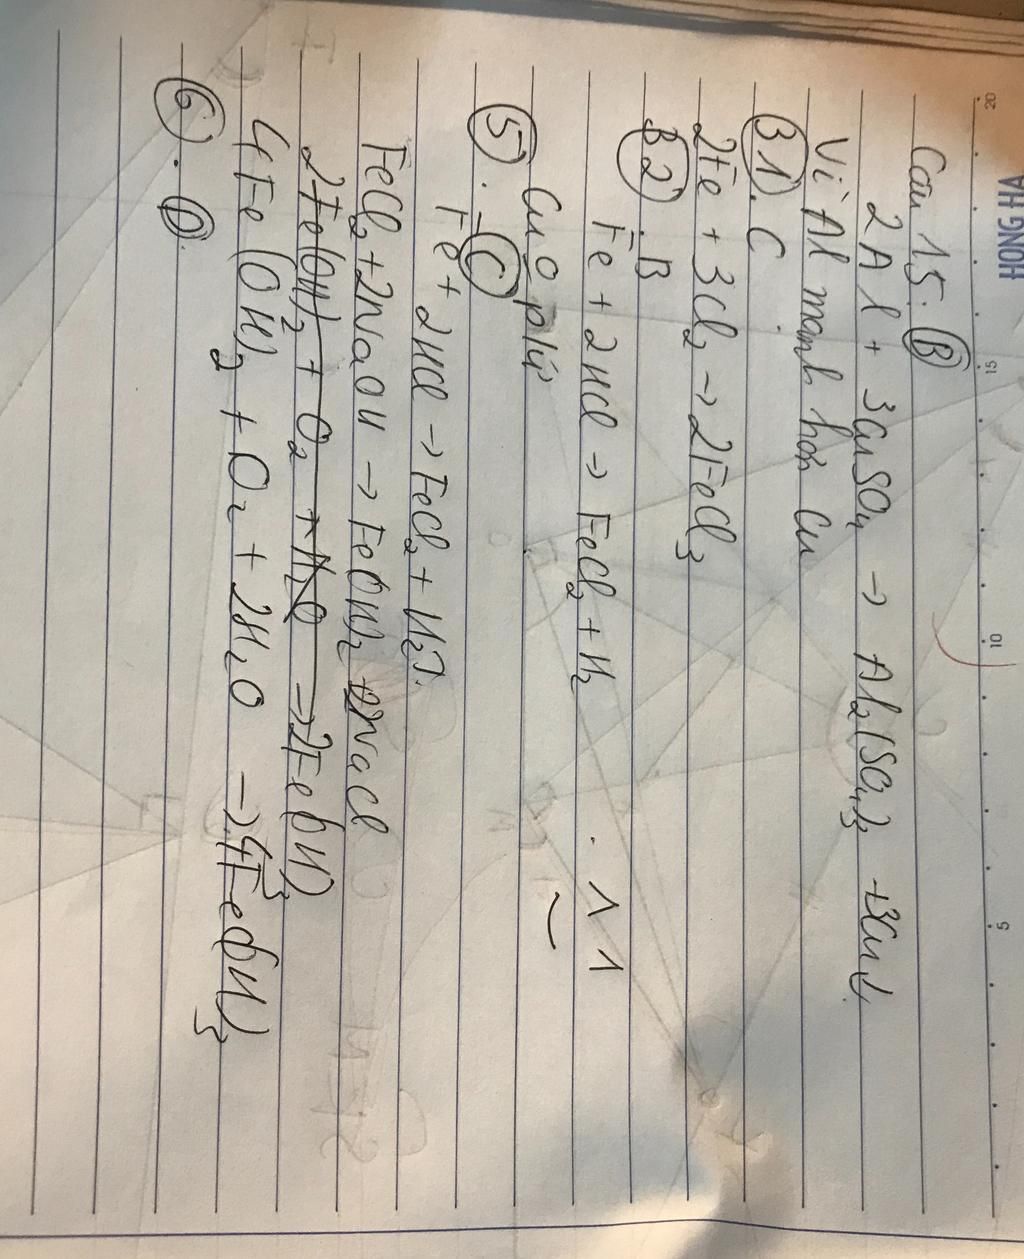 HONG HA
20 15 10 5
Câu 15. B
2Al + 3CuSO4 → Al2(SO4)3 + 3Cu↓
Vì Al mạnh hơn Cu
B1. C
2Fe + 3Cl2 → 2FeCl3
B2. B
Fe + 2HCl → FeCl2 + H2
CuO pứ
5. C
Fe + 2HCl → FeCl2 + H2↑.
FeCl2 + 2NaOH → Fe(OH)2 + 2NaCl
2Fe(OH)2 + O2 + H2O → 2Fe(OH)3
4Fe(OH)2 + O2 + 2H2O → 4Fe(OH)3
6. D